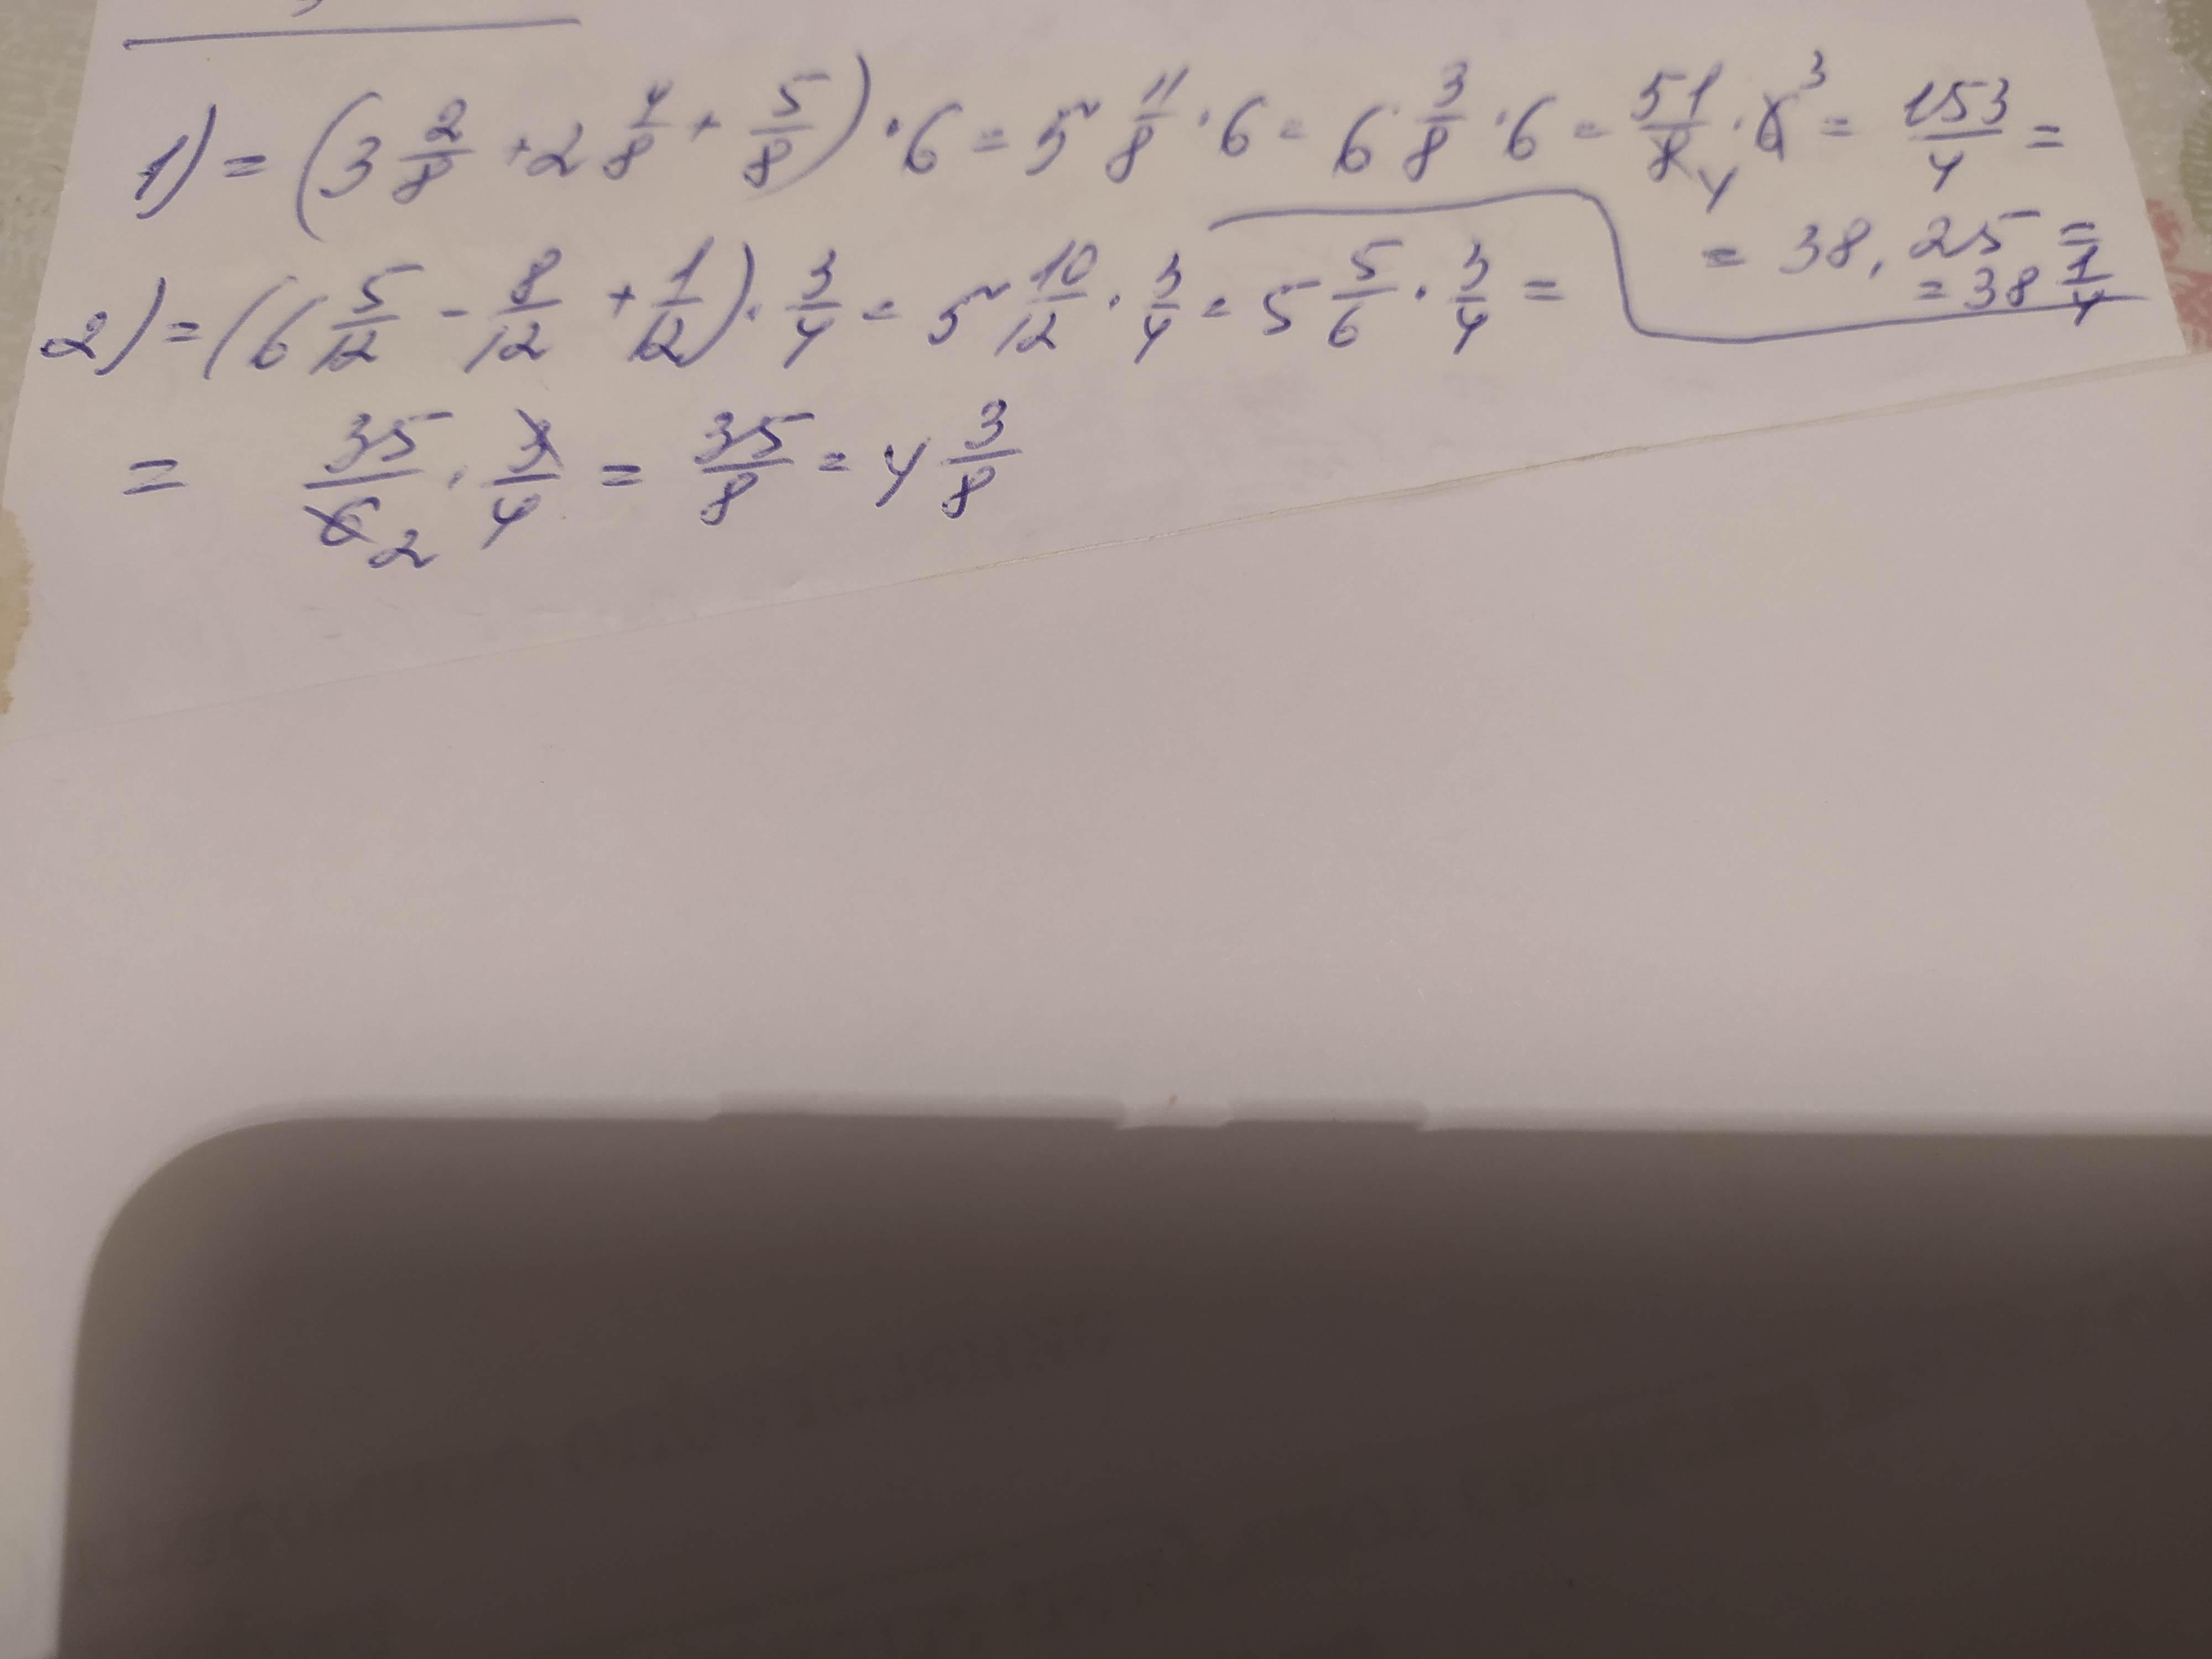 1) = (3 2/8 + 2 4/8 + 5/8) · 6 = 5 11/8 · 6 = 6 3/8 · 6 = 51/8 4 · 6 3 = 153/4 =
= 38,25 =
= 38 1/4
2) = (6 5/12 - 8/12 + 1/12) · 3/4 = 5 10/12 · 3/4 = 5 5/6 · 3/4 =
= 35/6 2 · 3/4 = 35/8 = 4 3/8